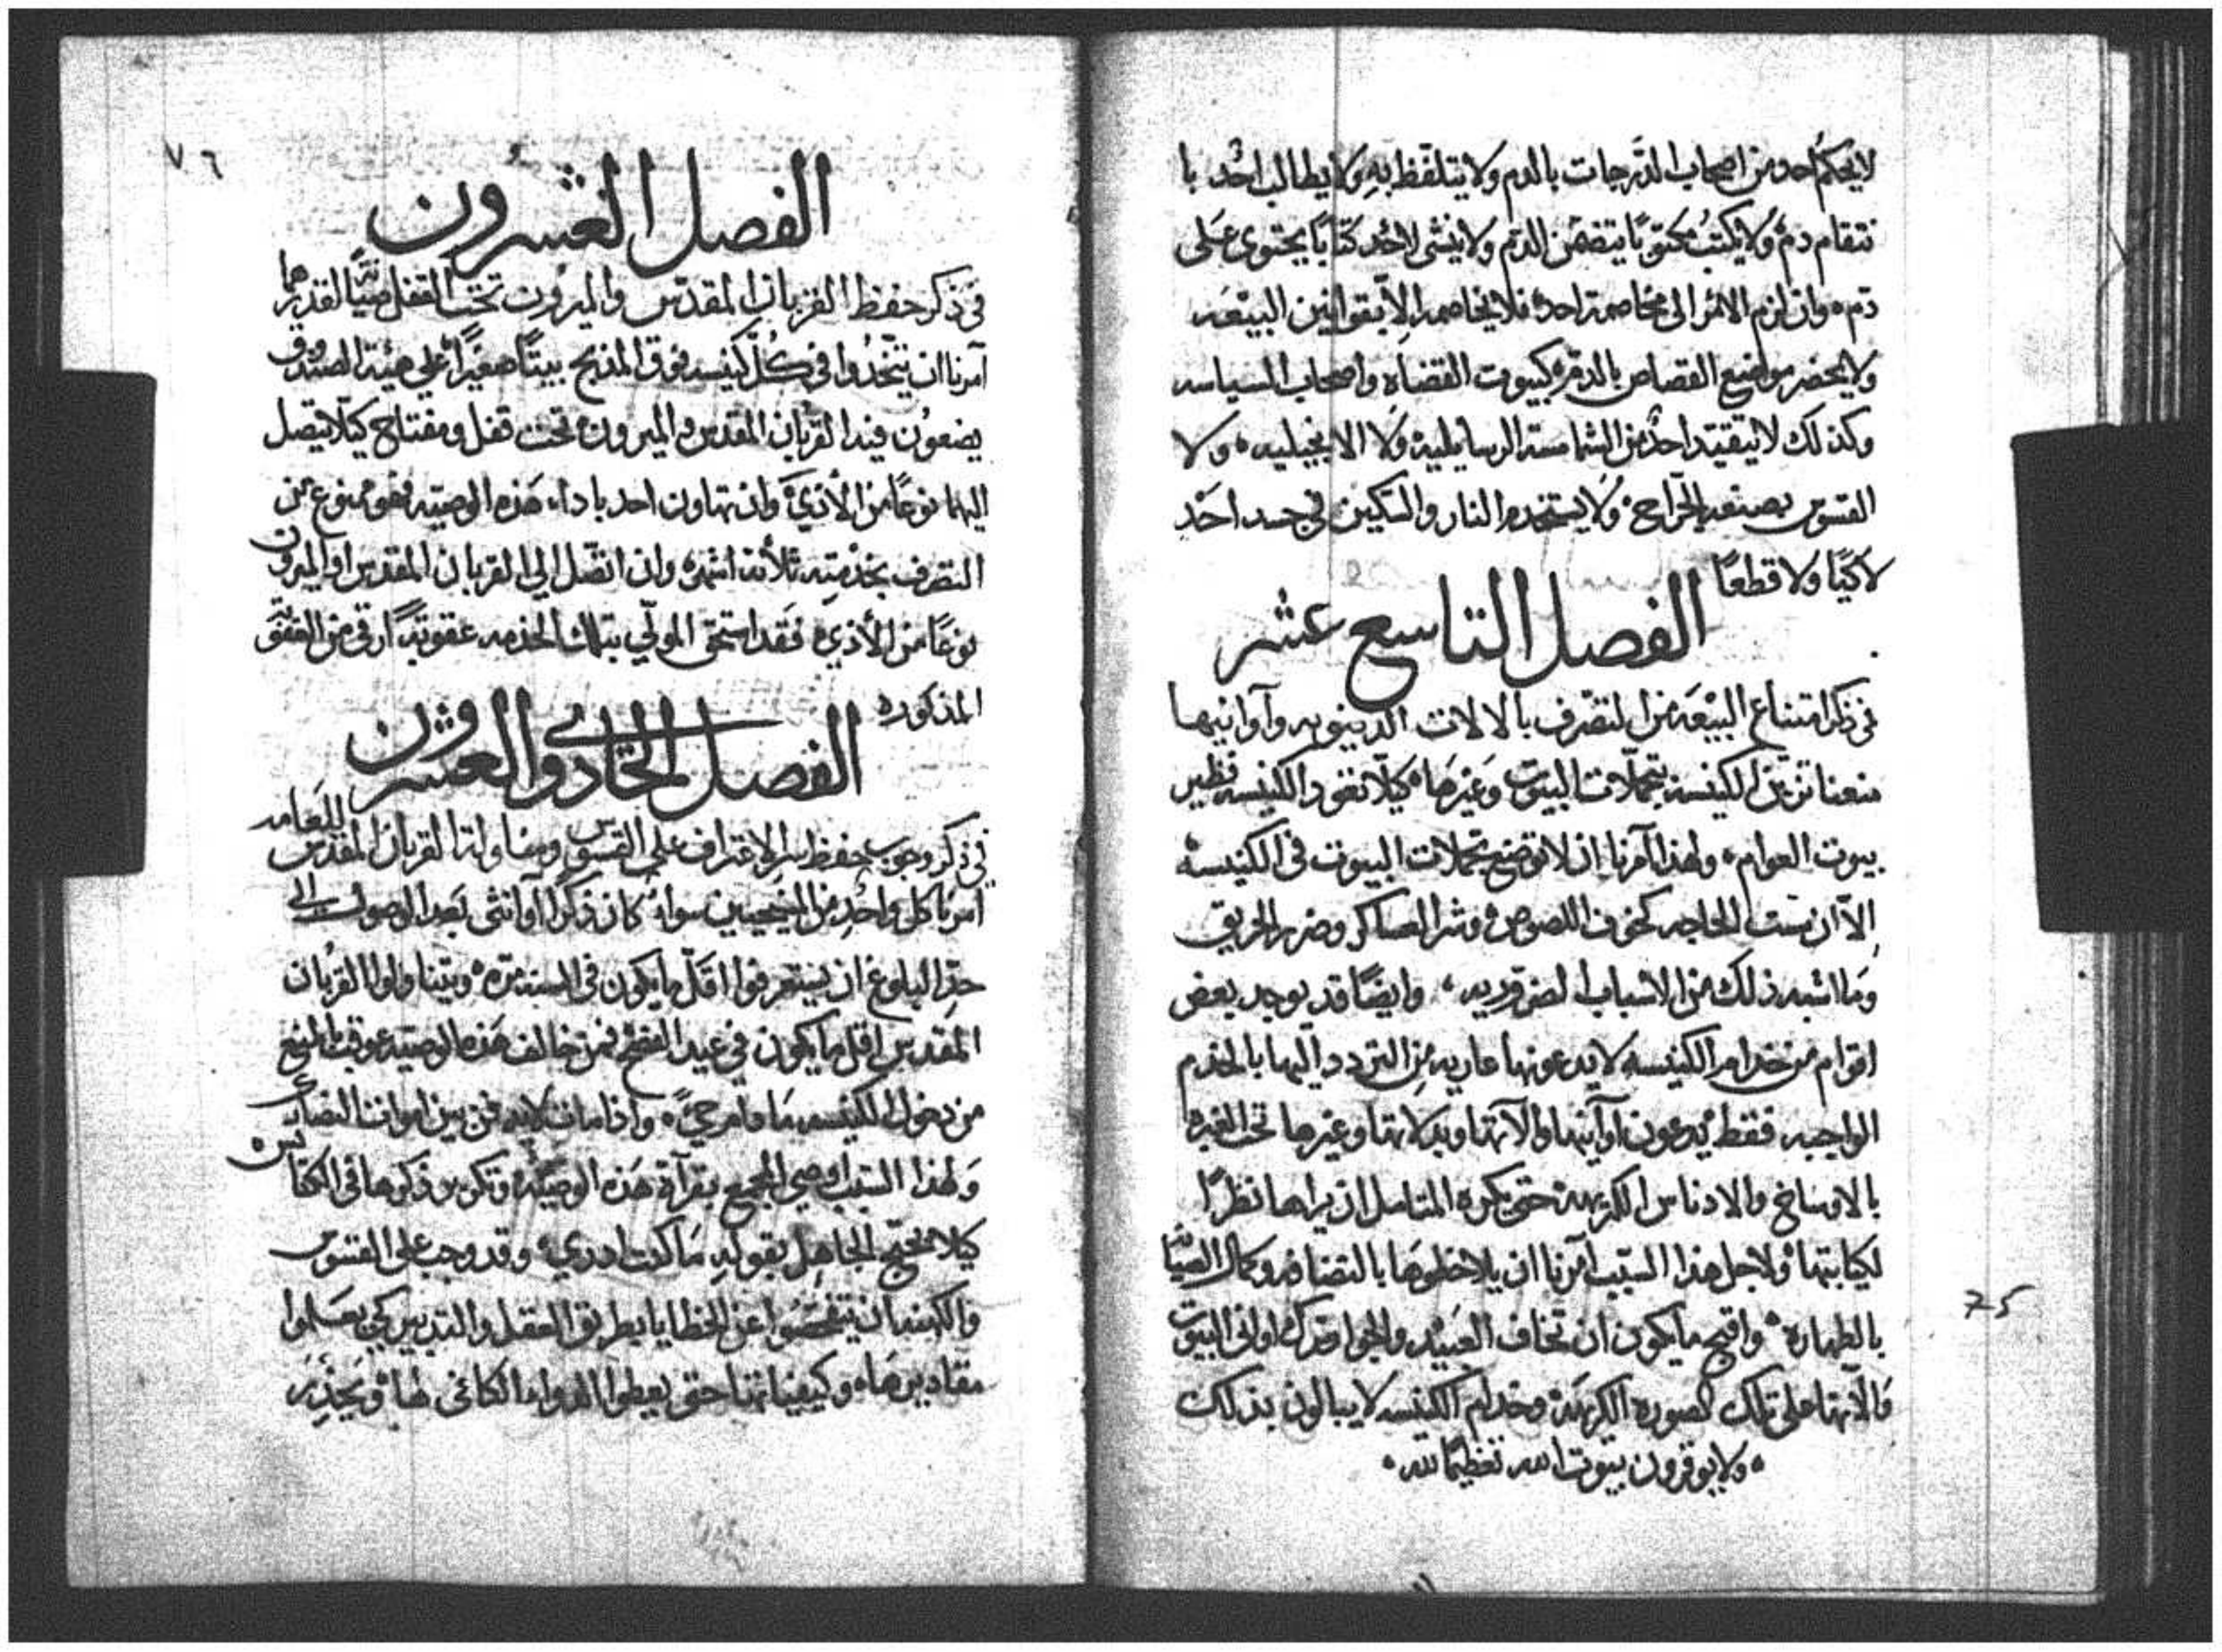 لا يحكم احد من اصحاب الدرجات بالدم ولا يتلفظ به ولا يطالب احد با
نتقام دم ولا يكتب مكتوبًا يتضمن الدم ولا ينشى لاحد كتابًا يحتوى على
دم وان لزم الامر الى مخاصمة احد فلا يخاصمه الا بقوانين البيعه
ولا يحضر مواضع القصاص بالدم كبيوت القضاه واصحاب السياسه
وكذلك لا يتقيد احد من الشمامسة الرسايلية ولا الانجيليه ولا
القسوس بصنعة الجراح ولا يستخدم النار والسكين في جسد احد
لا كيًا ولا قطعًا
الفصل التاسع عشر
في ذكر امتناع البيعه من التصرف بالالات الدينويه وآوانيها
منعنا تزين الكنيسه بتجملات البيوت وغيرها كيلا تغود الكنيسه نظير
بيوت العوام ولهذا آمرنا ان لا توضع تجملات البيوت في الكنيسه
إلا ان مست الحاجه كخوف اللصوص وشر العساكر وضرر الحريق
وما اشبه ذلك من الاسباب الضروريه وايضًا قد يوجد بعض
اقوام من خدام الكنيسه لا يدعونها عاريه من التردد اليها بالخدم
الواجبه فقط يدعون اوآنيها والآتها وبدلاتها وغيرها تحت الغبره
بالاوساخ والادناس الكريهه حتى يكره المتامل ان يراها نظرًا
لكيابتها ولاجل هذا السبب آمرنا ان يلاحظوها بالنضافه وكمال الصيانه
بالطهاره واقبح ما يكون ان تخاف العبيد والجوار ترك اوانى البيوت
والآتها على تلك الصوره الكريهه وخدام الكنيسه لا يبالون بذلك
ولا يوقرون بيوت الله تعظيمًا لله
75
٧٦
الفصل العشرون
في ذكر حفظ القربان المقدس والميرون تحت القفل صيانةً لقدرهما
آمرنا ان يتخذوا في كل كنيسه فوق المذبح بيتًا صغيرًا على هيئة الصندوق
يضعون فيه القربان المقدس والميرون تحت قفل ومفتاح كيلا يتصل
اليهما نوعًا من الأذي وان تهاون احد باداء هذه الوصيه فهو ممنوع من
التصرف بخدمته ثلاثة اشهر وان اتصل الي القربان المقدس او الميرون
نوعًا من الأذي فقد استحق المولي بتلك الخدمه عقوبةً ارقى من العقوبة
المذكوره
الفصل الحادي والعشرون
في ذكر وجوب حفظ سر الاعتراف على القسوس ومناولة القربان المقدس للعامه
امرنا كل واحد من المسيحيين سواء كان ذكرًا او انثى بعد الوصول الى
حد البلوغ ان يستعرفوا اقل ما يكون في السنه مره ويتناولوا القربان
المقدس اقل ما يكون في عيد الفصح فمن خالف هذه الوصيه عوقب بالمنع
من دخول الكنيسه ما دام حيً واذا مات لا يدفن بين اموات النصارى
ولهذا السبب اوصى المجمع بقرآة هذه الوصيّة وتكرير ذكرها في الكنائس
كيلا يحتج الجاهل بقوله ما كنت ادري وقد وجب على القسوس
والكهنه ان يتفحصوا عن الخطايا بطريق العقل والتدبير كي يعلموا
مقاديرها وكيفياتها حتى يعطوا الدواء الكافى لها ويحذر